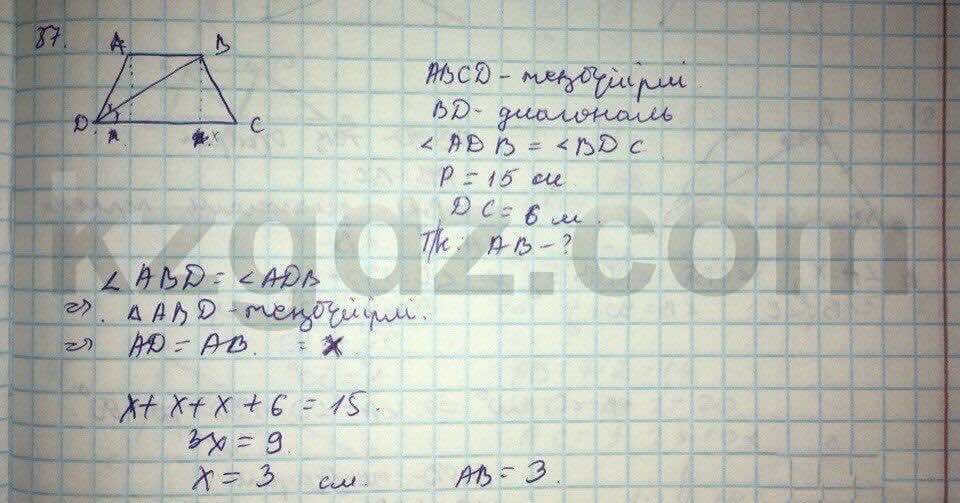 87.
A B
D C
x
ABCD - теңбүйірлі
BD - диагональ
∠ADB = ∠BDC
P = 15 см
DC = 6 м.
Т/к: AB - ?
∠ABD = ∠ADB
=> △ABD - теңбүйірлі.
=> AD = AB. = x
x + x + x + 6 = 15.
3x = 9.
x = 3 см. AB = 3.
kzgdz.com